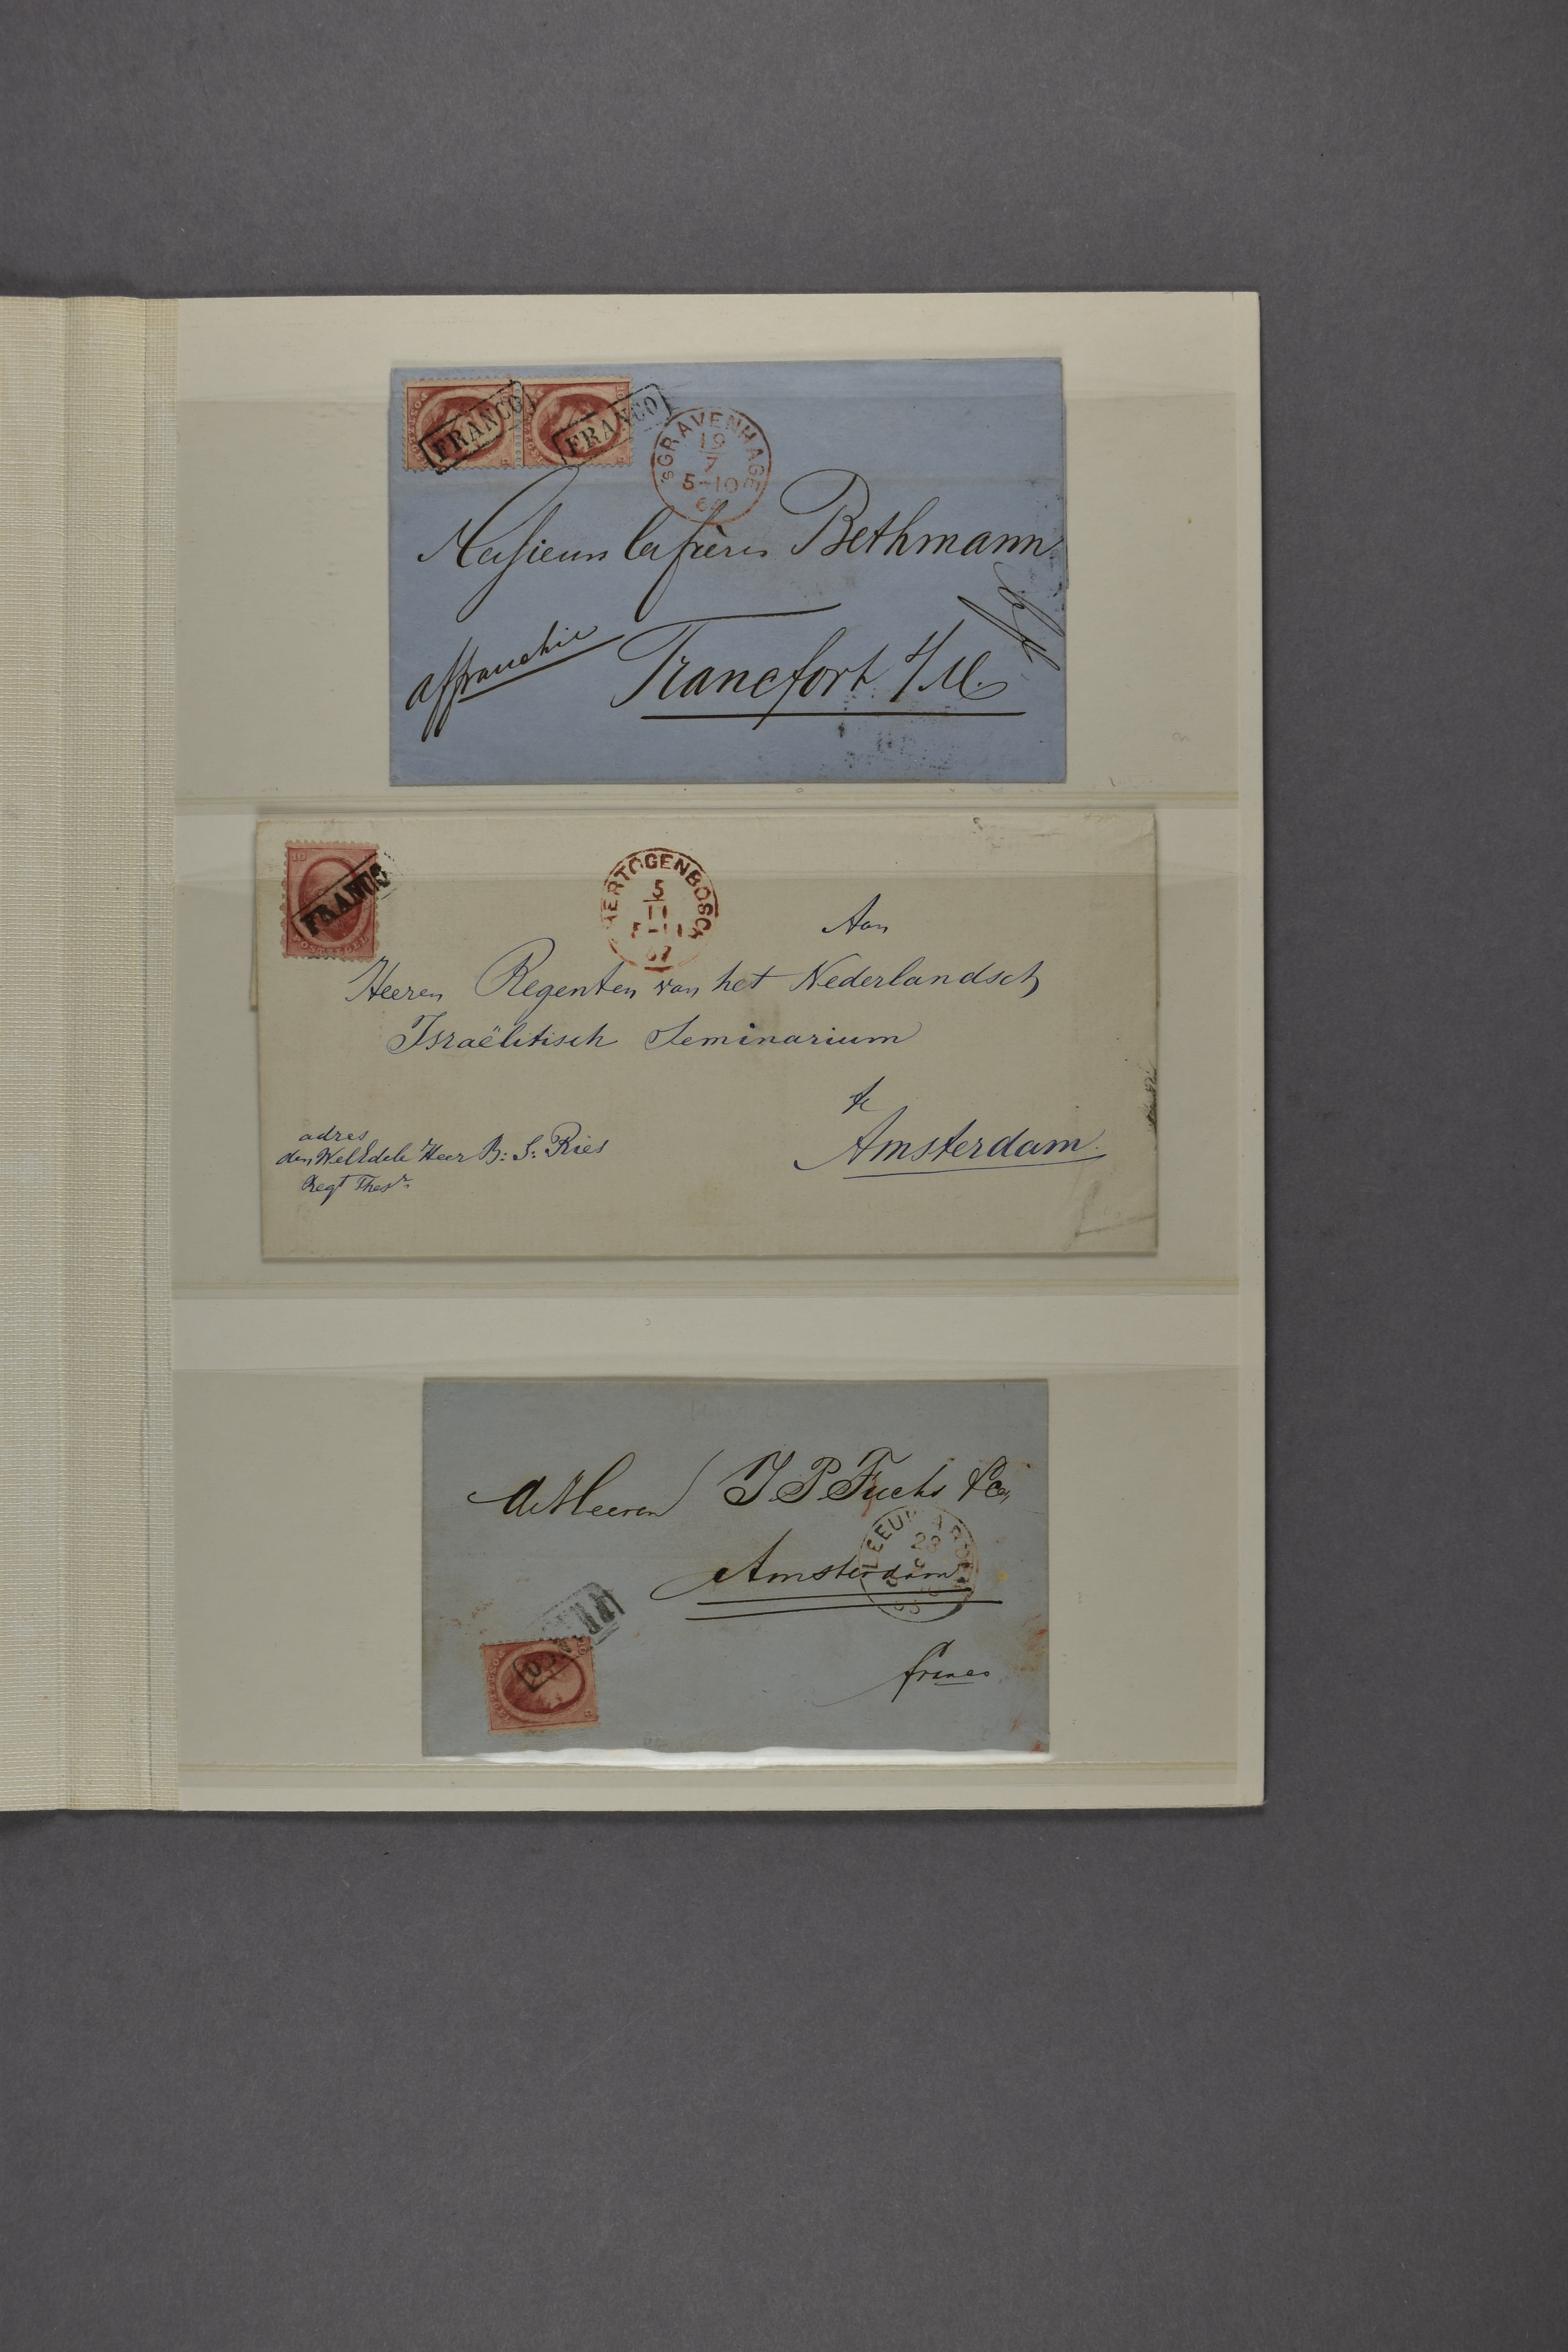 FRANCO FRANCO
'SGRAVENHAGE
19
7
5-10
Messieurs les frères Bethmann
affranchie
Francfort s/M.
10
FRANCO
POSTZEGEL
HERTOGENBOSCH
5
11
67
Aan
Heeren Regenten van het Nederlandsch
Israëlitisch Seminarium
te
Amsterdam.
adres
den WelEdele Heer B: S: Ries
Regt Thesr.
de Heeren J P Fuchs & Co,
LEEUWARDEN
28
Amsterdam
FRANCO
franco